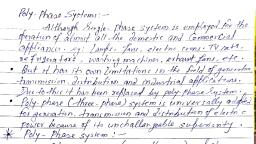 Poly-Phase Systems:-
Although Single-phase system is employed for the
operation of almost all the domestic and Commercial
appliance. eg: Lamps, fans, electric irons, T.V. sets,
refrigerators, washing machine, exhaust fans, etc.
But it has its own limitations in the field of generation,
transmission, distribution and industrial applications.
Due to this it has been replaced by poly phase System.
Poly-phase (three-phase) system is universally adopted
for generation, transmission and distribution of electric
power because of its unchallengeable superiority.
* Poly-Phase system:-